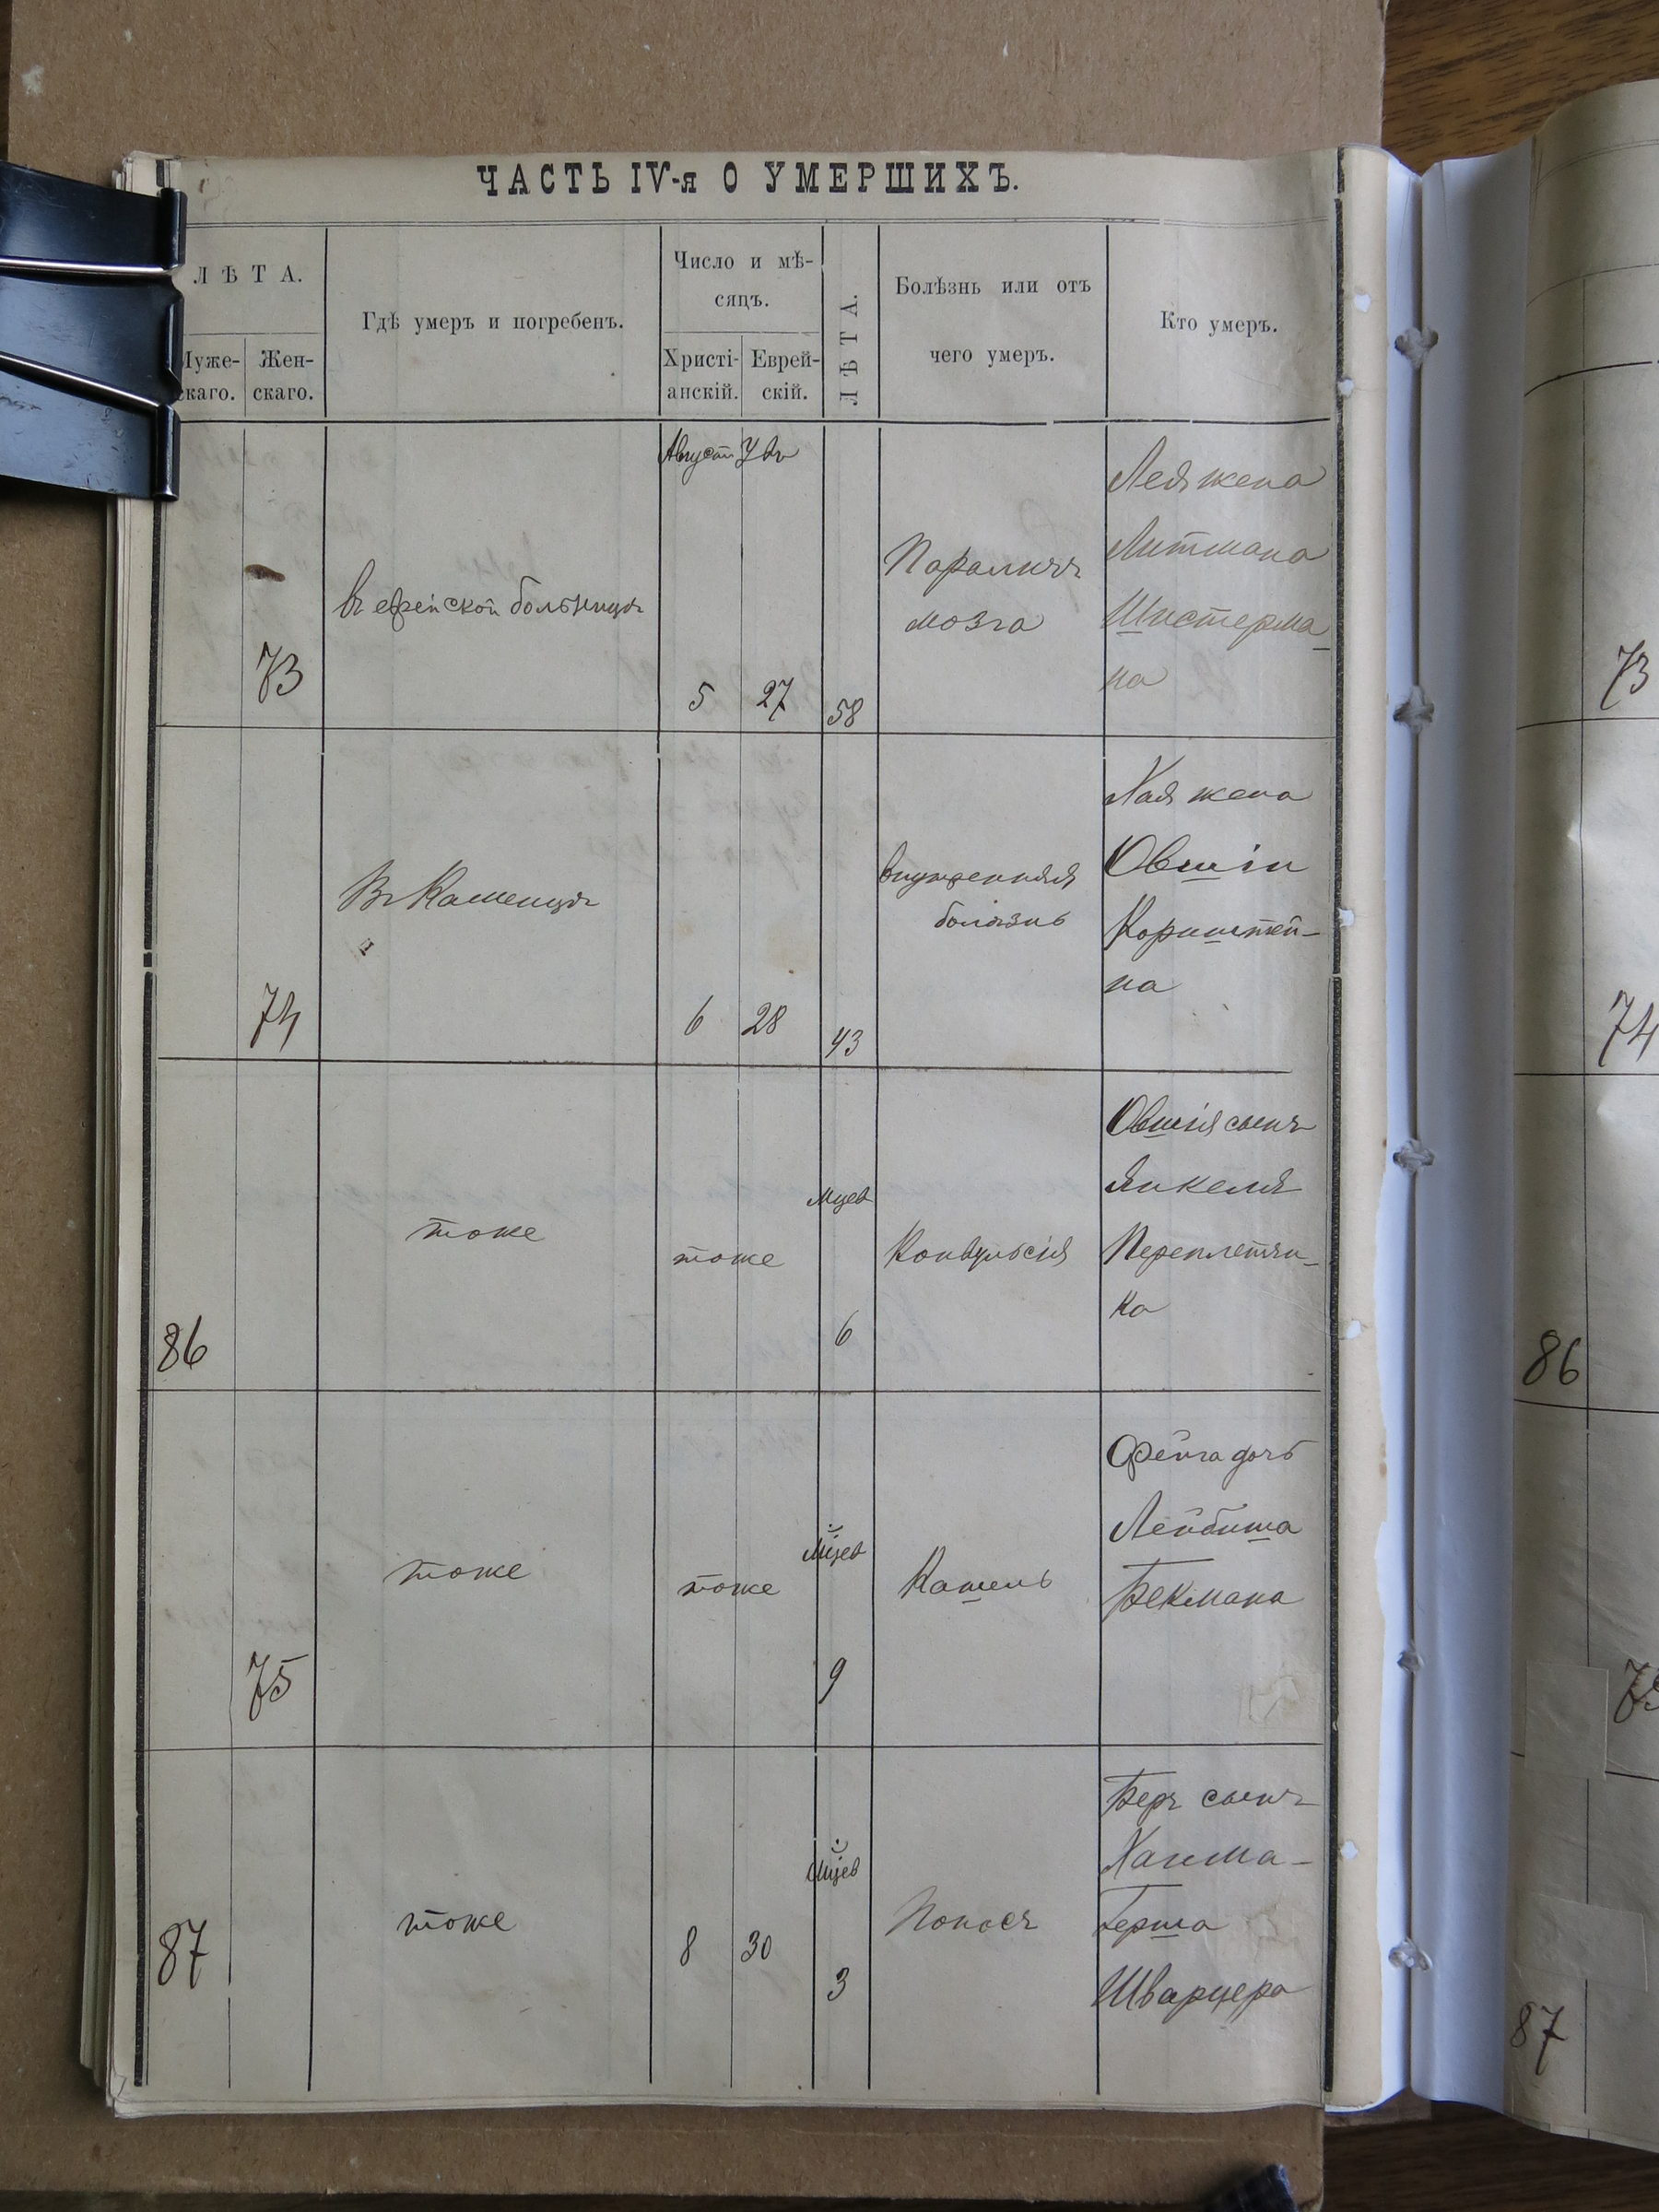 ЧАСТЬ IV-я О УМЕРШИХЪ.
ЛѢТА.
Муже-
скаго.
Жен-
скаго.
Гдѣ умеръ и погребенъ.
Число и мѣ-
сяцъ.
Христі-
анскій.
Еврей-
скій.
ЛѢТА.
Болѣзнь или отъ
чего умеръ.
Кто умеръ.
Августъ
73
въ еврейской больницѣ
5
27
58
Параличъ
мозга
Лея жена
Литмана
Шистерма
на
73
74
Въ Каменцѣ
6
28
43
внутренняя
болѣзнь
Хая жена
Овшіи
Корнштей-
на
74
86
тоже
тоже
Мцев
6
Конвульсія
Овшія сынъ
Янкеля
Переплетни-
ка
86
75
тоже
тоже
Мцев
9
Кашель
Фейга дочь
Лейбиша
Бекмана
75
87
тоже
8
30
Мцев
3
Поносъ
Беръ сынъ
Хаима-
Герша
Шварцера
87